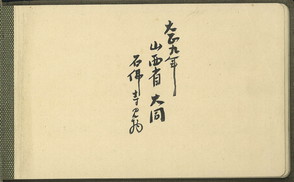 大正九年
山西省 大同
石佛寺見物